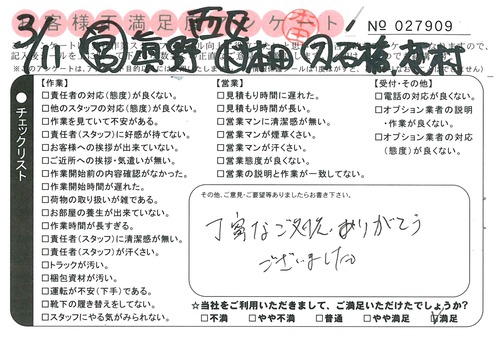 お客様不満足度アンケート
3/11
No 027909
チェックリスト
【作業】
□責任者の対応(態度)が良くない。
□他のスタッフの対応(態度)が良くない。
□作業を見ていて不安がある。
□責任者(スタッフ)に好感が持てない。
□お客様への挨拶が出来ていない。
□ご近所への挨拶・気遣いが無い。
□作業開始前の内容確認がなかった。
□作業開始時間が遅れた。
□荷物の取り扱いが雑である。
□お部屋の養生が出来ていない。
□作業時間が長すぎる。
□責任者(スタッフ)に清潔感が無い。
□責任者(スタッフ)が汗くさい。
□トラックが汚い。
□梱包資材が汚い。
□運転が不安(下手)である。
□靴下の履き替えをしてない。
□スタッフにやる気がみられない。
【営業】
□見積もり時間に遅れた。
□見積もり時間が長い。
□営業マンに清潔感が無い。
□営業マンが煙草くさい。
□営業マンが汗くさい。
□営業態度が良くない。
□営業の説明と作業が一致してない。
【受付・その他】
□電話の対応が良くない。
□オプション業者の説明
・作業が良くない。
□オプション業者の対応
(態度)が良くない。
その他、ご意見・ご要望等ありましたらお書き下さい。
丁寧なご対応ありがとう
ございました。
☆当社をご利用いただきまして、ご満足いただけたでしょうか?
□不満 □やや不満 □普通 □やや満足 ☑満足